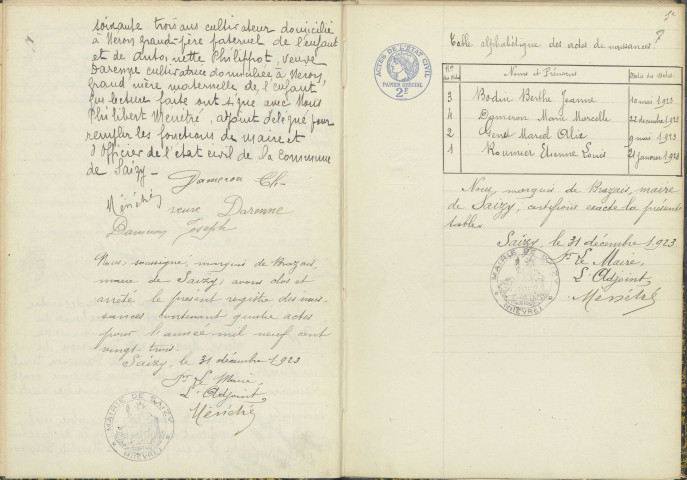 soixante trois ans cultivateur domicilié
à Neron grand-père paternel de l'enfant
et de Antoinette Philippot, veuve
Darenne cultivatrice domiciliée à Neron,
grand mère maternelle de l'enfant,
qui lecture faite ont signé avec Nous
Philibert Ménétré, adjoint délégué pour
remplir les fonctions de maire et
d'Officier de l'état civil de la Commune
de Saizy
Dameron Ch
Ménétré
veuve Darenne
Dameron Joseph
Nous, soussigné, marquis de Brazais,
maire de Saizy, avons clos et
arrêté le present registre des nais-
sances contenant quatre actes
pour l'année mil neuf cent
vingt-trois.
Saizy, le 31 décembre 1923
Pr Le Maire,
L'Adjoint,
Ménétré
MAIRIE DE SAIZY
(NIÈVRE)
ACTES DE L'ÉTAT CIVIL
PAPIER SPÉCIAL
2F
8
Table alphabétique des actes de naissances
Nos des Actes
Noms et Prénoms
Dates des Actes
3 Bodin Berthe Jeanne 10 mai 1923
4 Dameron Marie Marcelle 22 décembre 1923
2 Gené Marcel 9 mars 1923
1 Roumier Etienne Louis 21 janvier 1923
Nous, marquis de Brazais, maire
de Saizy, certifions exacte la présente
table.
Saizy le 31 décembre 1923
Pr Le Maire,
L'Adjoint,
Ménétré
MAIRIE DE SAIZY
(NIÈVRE)